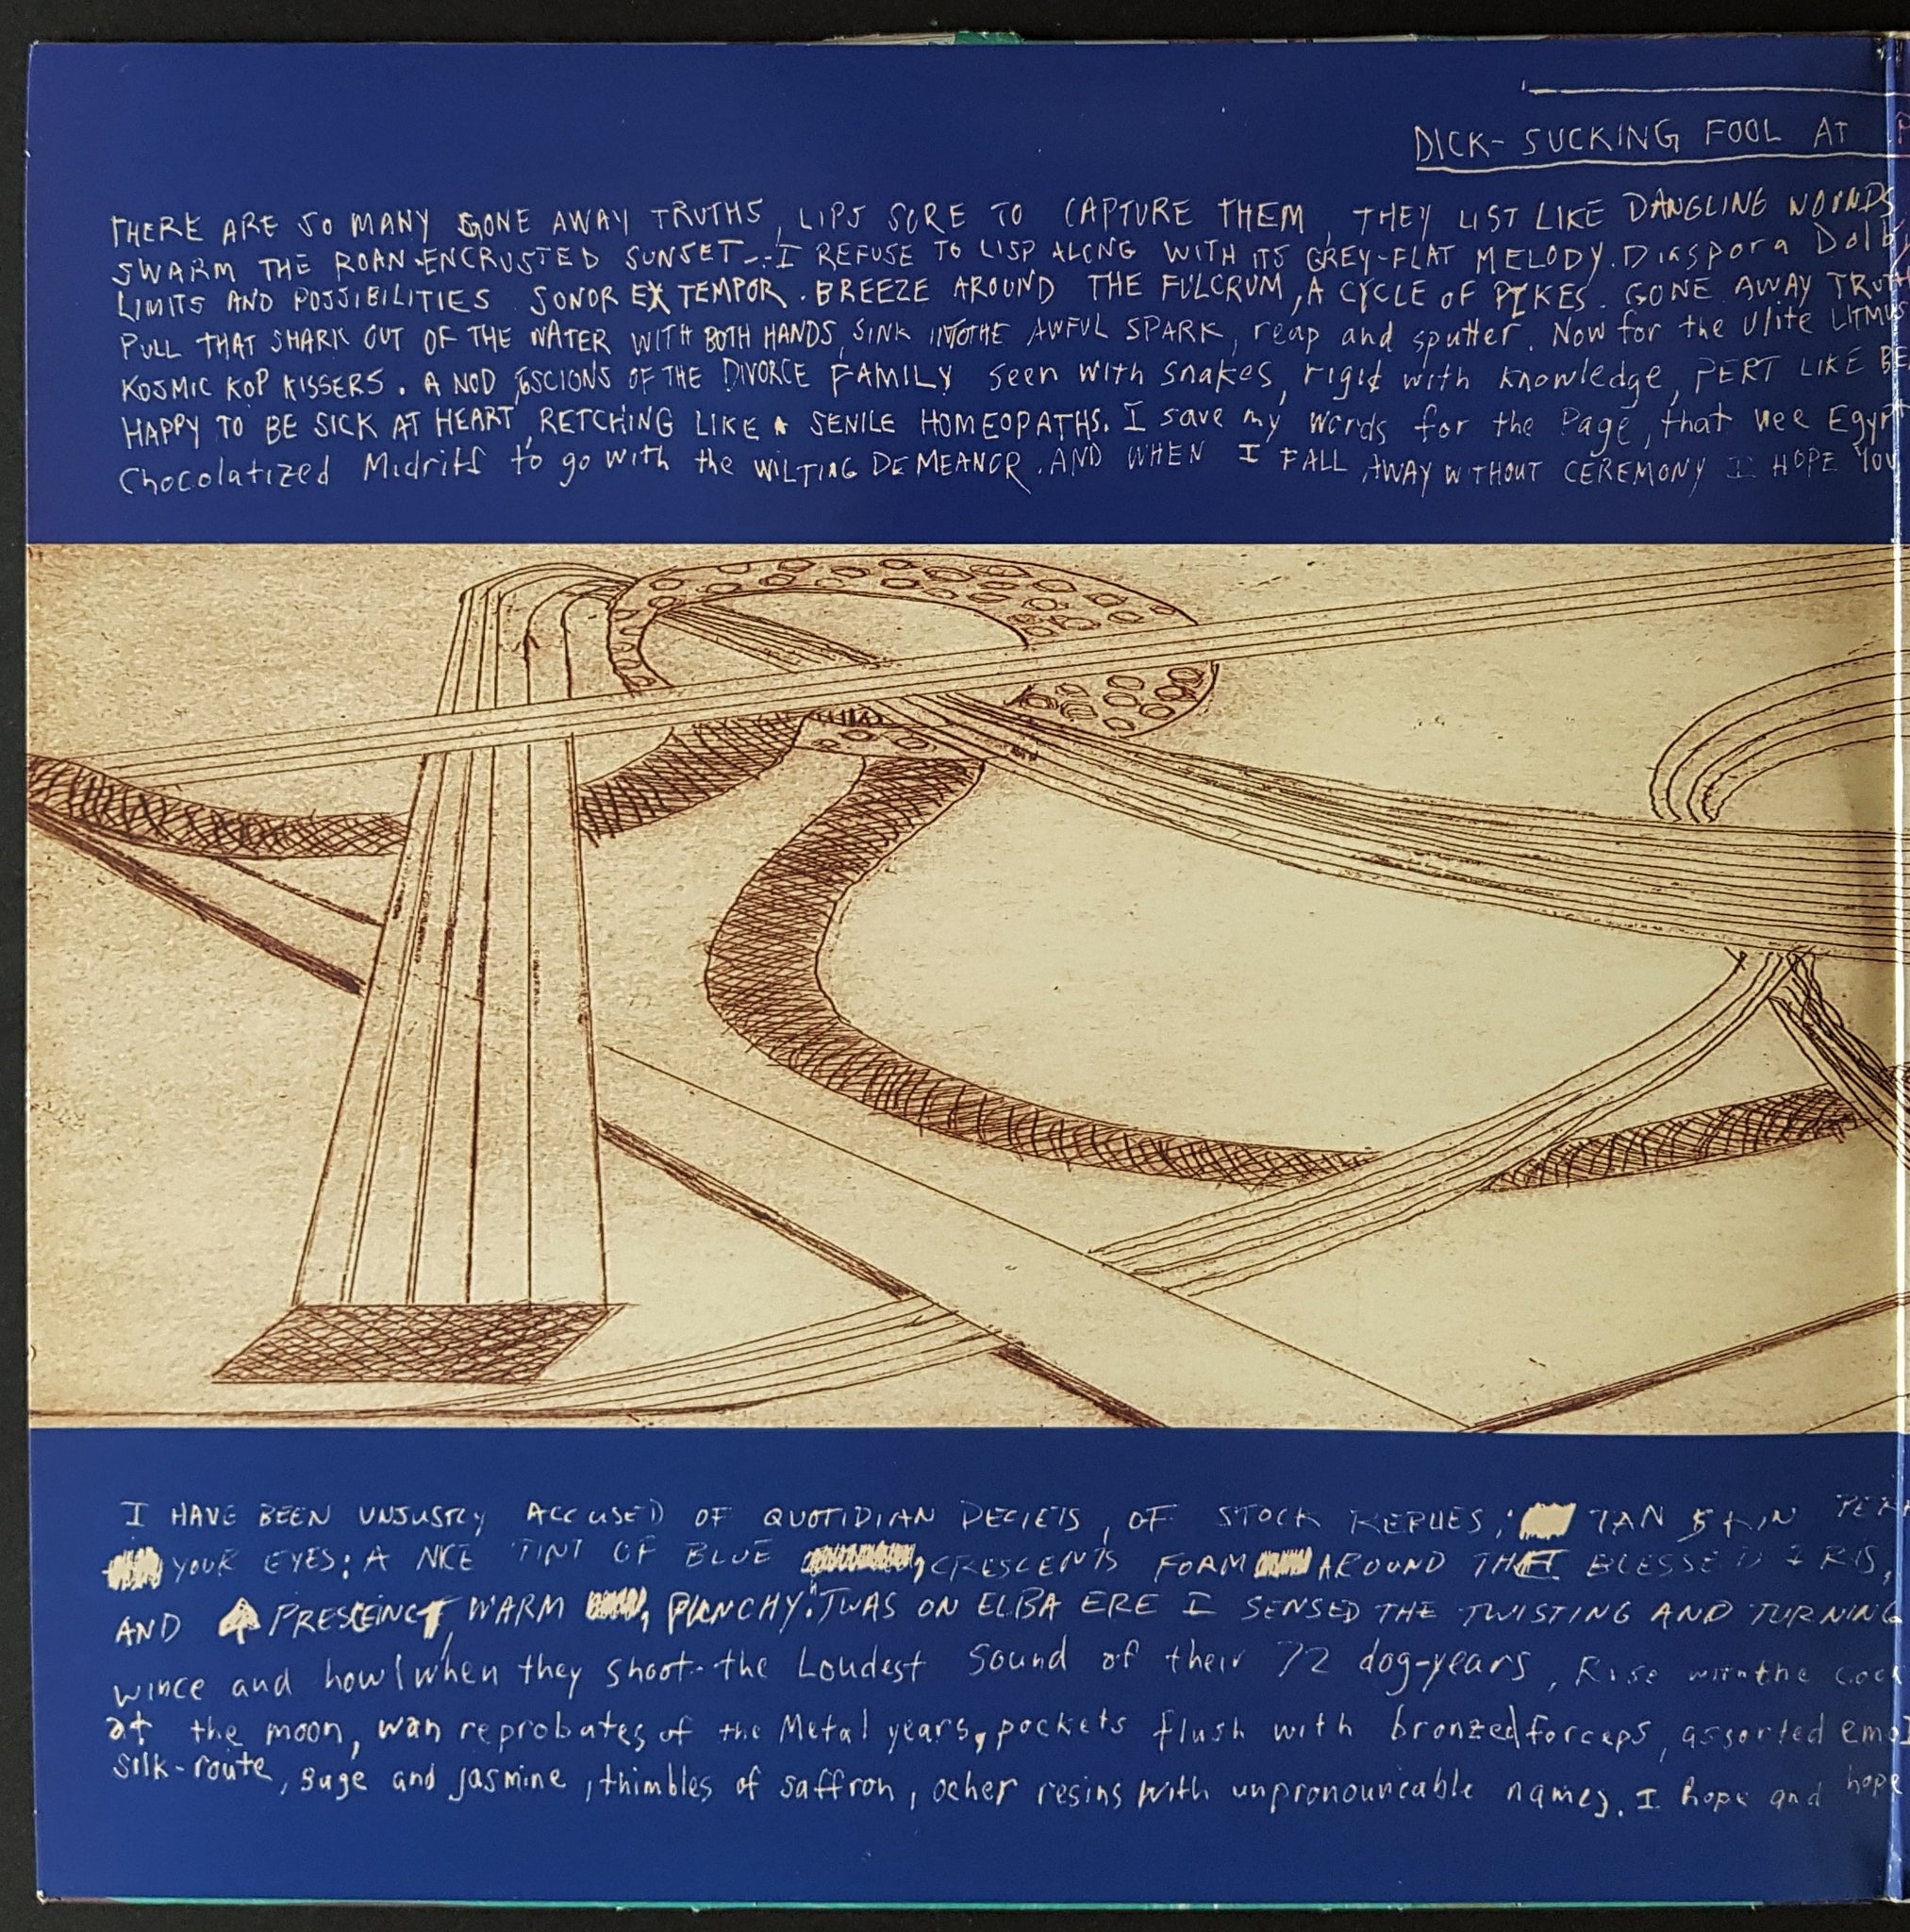 DICK-SUCKING FOOL AT
THERE ARE SO MANY GONE AWAY TRUTHS, LIPS SORE TO CAPTURE THEM, THEY LIST LIKE DANGLING WOUNDS,
SWARM THE ROAN-ENCRUSTED SUNSET--I REFUSE TO LISP ALONG WITH ITS GREY-FLAT MELODY. Diaspora
LIMITS AND POSSIBILITIES SONOR EX TEMPOR. BREEZE AROUND THE FULCRUM, A CYCLE OF PYKES. GONE AWAY
PULL THAT SHARK OUT OF THE WATER WITH BOTH HANDS, SINK INTO THE AWFUL SPARK, reap and sputter. Now for the
KOSMIC KOP KISSERS. A NOD SCIONS OF THE DIVORCE FAMILY seen with snakes, rigid with knowledge, PERT LIKE
HAPPY TO BE SICK AT HEART, RETCHING LIKE A SENILE HOMEOPATHS. I save my words for the Page, that wee
Chocolatized Midrifs to go with the WILTING DEMEANOR. AND WHEN I FALL AWAY WITHOUT CEREMONY I HOPE YOU
I HAVE BEEN UNJUSTLY ACCUSED OF QUOTIDIAN DECIETS, OF STOCK REPLIES; TAN SKIN
YOUR EYES; A NICE TINT OF BLUE, CRESCENTS FORM AROUND THAT BLESSED IRIS,
AND PRESCEINCT, WARM, PUNCHY. 'TWAS ON ELBA ERE I SENSED THE TWISTING AND TURNING
wince and howl when they shoot the Loudest Sound of their 72 dog-years, Rise with the
at the moon, wan reprobates of the Metal years, pockets flush with bronzed forceps, assorted
silk-route, sage and jasmine, thimbles of saffron, ocher resins with unpronouncable names. I hope and hope